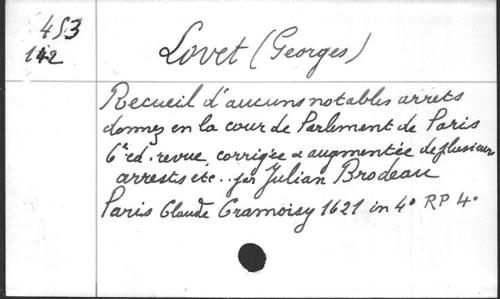 453
142
Lovet (Georges)
Recueil d'aucuns notables arrets
donnez en la cour de Parlement de Paris
6e ed. revue, corrigée & augmentée de plusieurs
arrests etc.. par Julian Brodeau
Paris Claude Cramoisy 1621 in 4° RP 4°